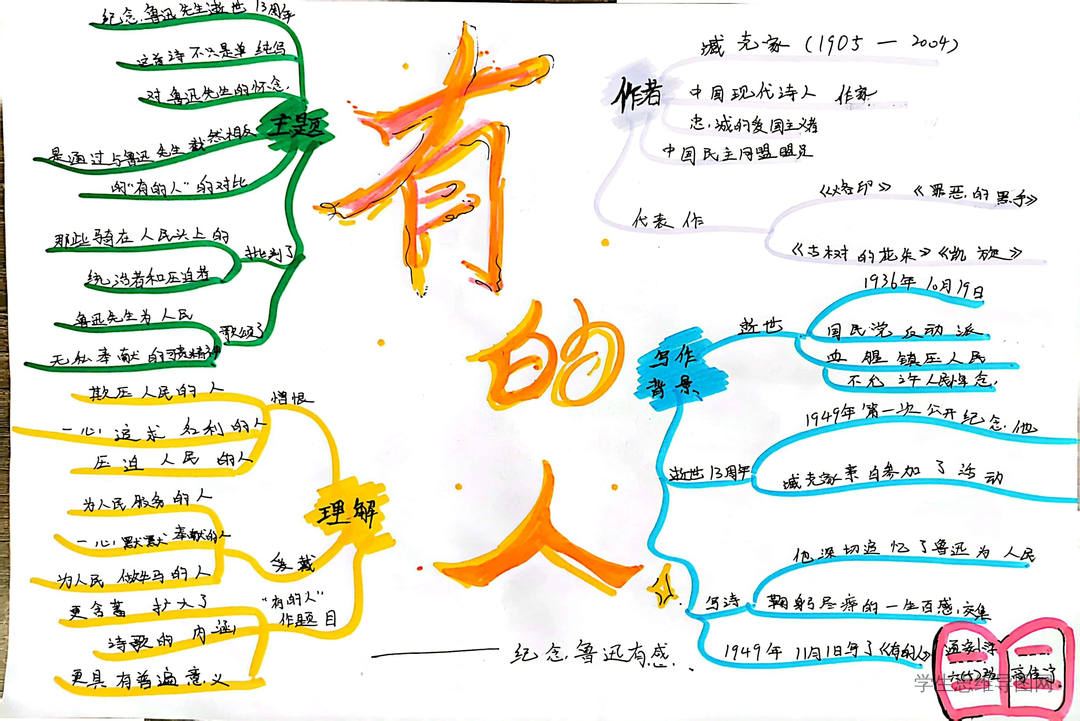 有
的
人
纪念鲁迅先生逝世13周年
这首诗不只是单纯写
对鲁迅先生的怀念,
是通过与鲁迅先生截然相反
的"有的人"的对比
主题
那些骑在人民头上的
统治者和压迫者
批判了
鲁迅先生为人民
无私奉献的
歌颂了
欺压人民的人
一心追求名利的人
压迫人民的人
憎恨
理解
为人民服务的人
一心默默奉献的人
为人民做牛马的人
爱戴
更含蓄 扩大了
诗歌的内涵
更具有普遍意义
"有的人"
作题目
作者
臧克家(1905—2004)
中国现代诗人 作家
忠诚的爱国主义者
中国民主同盟盟员
代表作
《烙印》《罪恶的黑手》
《古树的花朵》《凯旋》
写作
背景
逝世
1936年10月19日
国民党反动派
血腥镇压人民
不允许人民悼念,
逝世13周年
1949年第一次公开纪念他
臧克家亲自参加了活动
写诗
他深切追忆了鲁迅为人民
鞠躬尽瘁的一生百感交集
1949年11月1日写了《有的人》
——纪念鲁迅有感
学生思维导图网